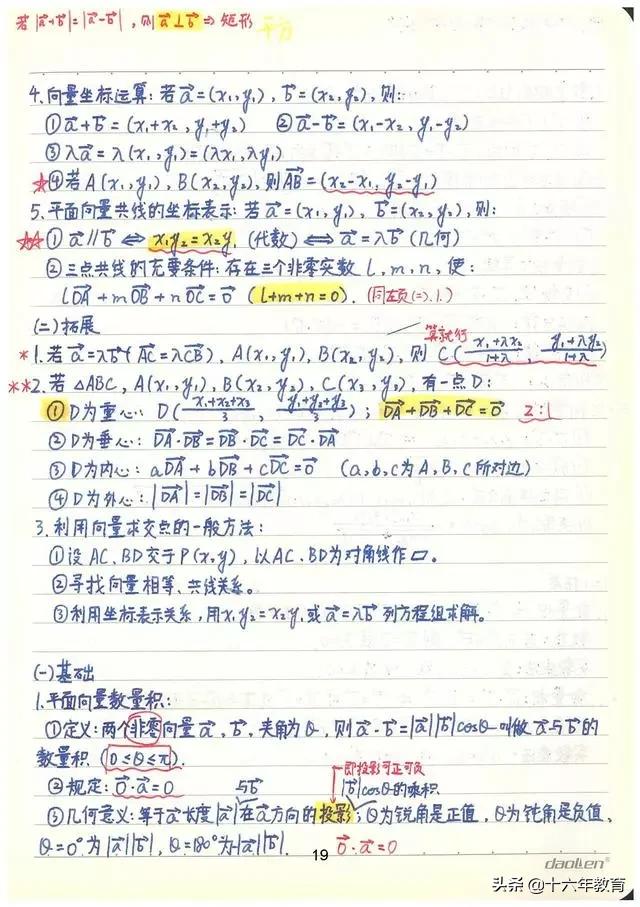 若|a⃗+b⃗|=|a⃗-b⃗|,则a⃗⊥b⃗⇒矩形 平方
4.向量坐标运算:若a⃗=(x₁,y₁),b⃗=(x₂,y₂),则:
①a⃗+b⃗=(x₁+x₂,y₁+y₂) ②a⃗-b⃗=(x₁-x₂,y₁-y₂)
③λa⃗=λ(x₁,y₁)=(λx₁,λy₁)
★④若A(x₁,y₁),B(x₂,y₂),则AB⃗=(x₂-x₁,y₂-y₁)
5.平面向量共线的坐标表示:若a⃗=(x₁,y₁),b⃗=(x₂,y₂),则:
★★①a⃗∥b⃗⇔x₁y₂=x₂y₁(代数)⇔a⃗=λb⃗(几何)
②三点共线的充要条件:存在三个非零实数l,m,n,使:
lDA⃗+mOB⃗+nOC⃗=0⃗(l+m+n=0).(同左页(=).1.)
(二)拓展
算就行
*1.若a⃗=λb⃗(AC⃗=λCB⃗),A(x₁,y₁),B(x₂,y₂),则C((x₁+λx₂)/(1+λ),(y₁+λy₂)/(1+λ))
**2.若△ABC,A(x₁,y₁),B(x₂,y₂),C(x₃,y₃),有一点D:
①D为重心:D((x₁+x₂+x₃)/3,(y₁+y₂+y₃)/3);DA⃗+DB⃗+DC⃗=0⃗ 2:1
②D为垂心:DA⃗·DB⃗=DB⃗·DC⃗=DC⃗·DA⃗
③D为内心:aDA⃗+bDB⃗+cDC⃗=0⃗ (a,b,c为A,B,C所对边)
④D为外心:|DA⃗|=|DB⃗|=|DC⃗|
3.利用向量求交点的一般方法:
①设AC、BD交于P(x,y),以AC、BD为对角线作▱。
②寻找向量相等、共线关系。
③利用坐标表示关系,用x₁y₂=x₂y₁或a⃗=λb⃗列方程组求解。
(一)基础
1.平面向量数量积:
①定义:两个非零向量a⃗,b⃗,夹角为θ,则a⃗·b⃗=|a⃗||b⃗|cosθ叫做a⃗与b⃗的
数量积(0≤θ≤π).
即投影可正可负
②规定:0⃗·a⃗=0 与b⃗ |b⃗|cosθ的乘积.
③几何意义:等于a⃗长度|a⃗|在a⃗方向的投影;θ为锐角是正值,θ为钝角是负值,
θ=0°为|a⃗||b⃗|,θ=180°为-|a⃗||b⃗|. 0⃗·a⃗=0
19
daolien®
头条@十六年教育